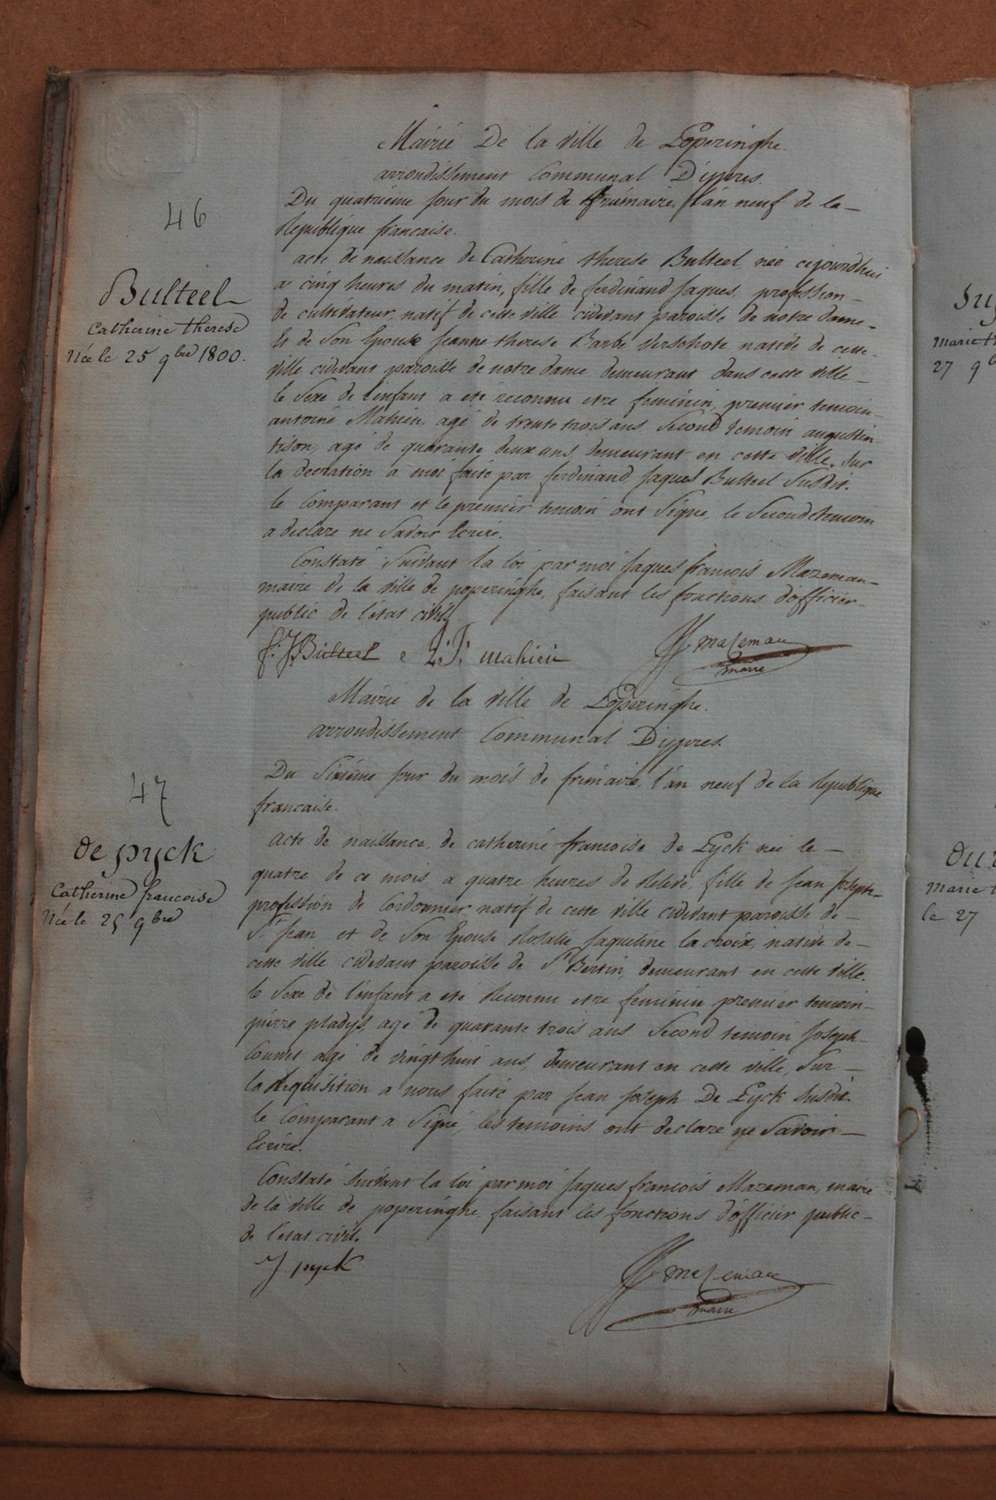 Mairie De la ville de Poperinghe.
arrondissement Communal D'ijpres.
46
Du quatriéme jour du mois de frimaire, l'an neuf de la
Republique francaise.
Bulteel
Catherine therese
Née le 25 9bre 1800.
acte de naissance de Catherine therese Bulteel née cejourdhui
a cinq heures du matin, fille de ferdinand Jaques, profession
de cultivateur, natif de cette ville cidevant paroisse de notre dame
et de son Epouse Jeanne therese Barbe Verschote native de cette
ville cidevant paroisse de notre dame demeurant dans cette ville
le sexe de l'enfant a eté reconnu etre feminin, premier temoin
antoine Mahieu, agé de trente trois ans second temoin augustin
tison, agé de quarante deux ans demeurant en cette ville. Sur
la declaration a moi faite par ferdinand Jaques Bulteel Susdit.
le Comparant et le premier temoin ont Signé, le Second temoin
a declaré ne Savoir Ecrire.
Constaté Suivant la loi par moi Jaques francois Mazeman
maire de la ville de poperinghe, faisant les fonctions d'officier
public de l'etat civil.
f. J. Bulteel mahieu
mazeman
maire
Mairie de la ville de Poperinghe.
arrondissement Communal D'ijpres.
47
Du Sixiéme jour du mois de frimaire, l'an neuf de la Republique
francaise.
de pyck
Catherine francoise
Née le 25 9bre
acte de naissance de catherine francoise de Pyck née le
quatre de ce mois a quatre heures de relevé, fille de Jean Joseph
profession de Cordonnier natif de cette ville cidevant paroisse de
St. Jean et de son Epouse Rosalie Jaqueline la croix, native de
cette ville cidevant paroisse de St. Bertin, demeurant en cette ville.
le Sexe de l'enfant a eté Reconnu etre feminin premier temoin
pierre pladys, agé de quarante trois ans Second temoin Joseph
agé de vingt huit ans, demeurant en cette ville, Sur
la Requisition a nous faite par Jean Joseph De Pyck Susdit.
le Comparant a Signé, les temoins ont declaré ne Savoir
Ecrire.
Constaté Suivant la loi par moi Jaques francois Mazeman, maire
de la ville de poperinghe, faisant les fonctions d'officier public
de l'etat civil.
J. pyck
mazeman
maire
marie
27 9b
marie
le 27